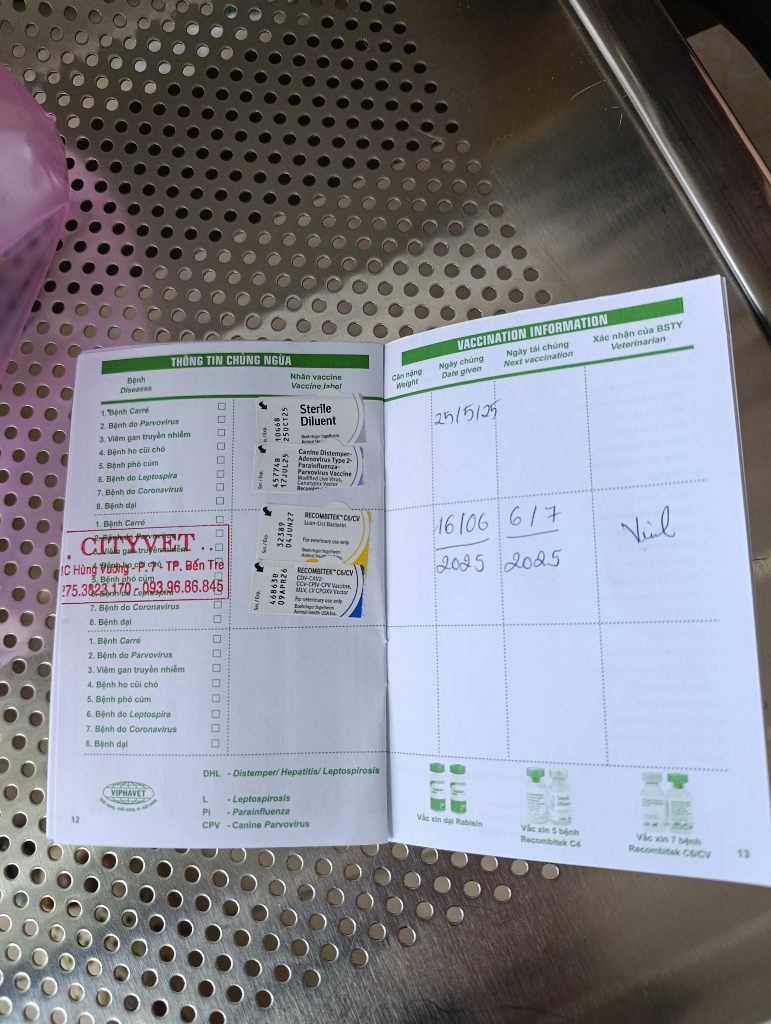 THÔNG TIN CHỦNG NGỪA
Bệnh
Diseases
Nhãn vaccine
Vaccine label
1. Bệnh Carré
2. Bệnh do Parvovirus
3. Viêm gan truyền nhiễm
4. Bệnh ho cũi chó
5. Bệnh phó cúm
6. Bệnh do Leptospira
7. Bệnh do Coronavirus
8. Bệnh dại
Sterile
Diluent
Boehringer Ingelheim
10668
25OCT25
Canine Distemper-
Adenovirus Type 2-
Parainfluenza-
Parvovirus Vaccine
Modified Live Virus,
Canarypox Vector
Ser./Exp.
45774B
17JUL25
1. Bệnh Carré
Viêm gan truyền nhiễm
5. Bệnh phó cúm
7. Bệnh do Coronavirus
8. Bệnh dại
CITYVET
Hùng Vương - P.7 - TP. Bến Tre
275.3823.170 - 093.96.86.845
RECOMBITEK C6/CV
For veterinary use only
Boehringer Ingelheim
Ser./Exp.
32389
04JUN27
RECOMBITEK C6/CV
CDV-CAV2-
CCV-CPIV-CPV Vaccine,
MLV, LV CPOXV Vector
For veterinary use only
Boehringer Ingelheim
Animal Health USA Inc.
Ser./Exp.
46863B
09APR26
1. Bệnh Carré
2. Bệnh do Parvovirus
3. Viêm gan truyền nhiễm
4. Bệnh ho cũi chó
5. Bệnh phó cúm
6. Bệnh do Leptospira
7. Bệnh do Coronavirus
8. Bệnh dại
VIPHAVET
DHL - Distemper/ Hepatitis/ Leptospirosis
L - Leptospirosis
Pi - Parainfluenza
CPV - Canine Parvovirus
12
VACCINATION INFORMATION
Cân nặng
Weight
Ngày chủng
Date given
Ngày tái chủng
Next vaccination
Xác nhận của BSTY
Veterinarian
25/5/25
16/06
2025
6/7
2025
Vắc xin dại Rabisin
Vắc xin 5 bệnh
Recombitek C4
Vắc xin 7 bệnh
Recombitek C6/CV
13